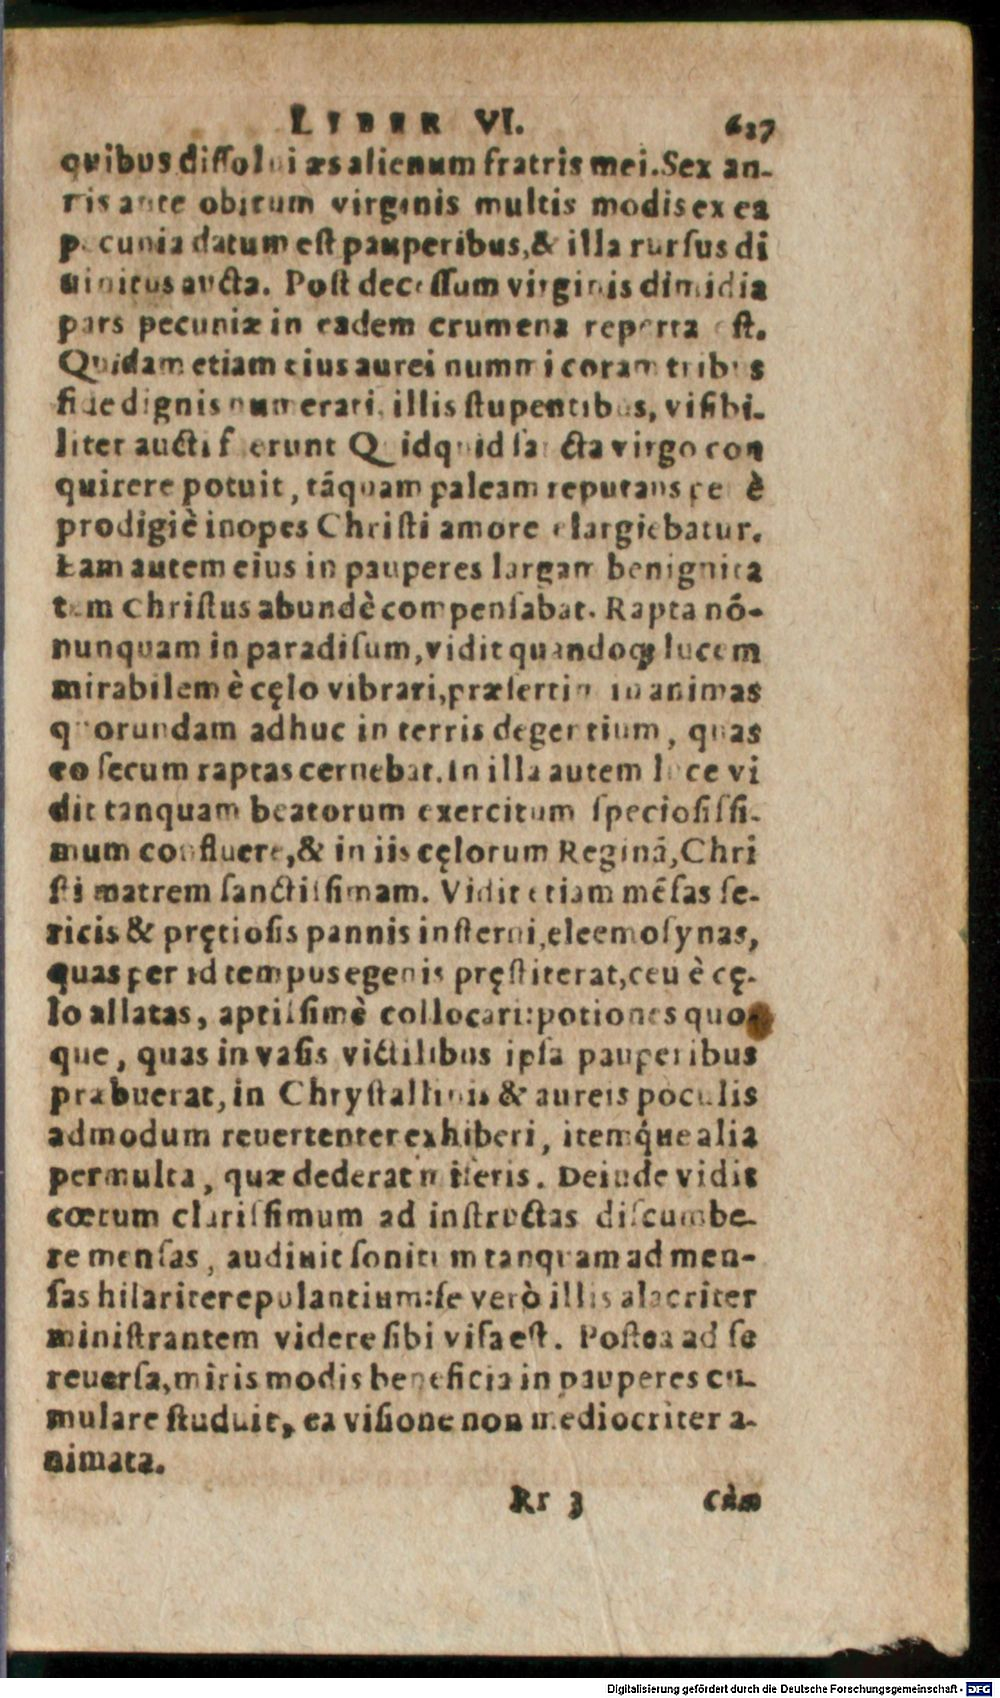 LIBER VI. 627
quibus dissolui æs alienum fratris mei. Sex an-
nis ante obitum virginis multis modis ex ea
pecunia datum est pauperibus, & illa rursus di
uinitus aucta. Post decessum virginis dimidia
pars pecuniæ in eadem crumena reperta est.
Quidam etiam eius aurei nummi coram tribus
fide dignis numerari, illis stupentibus, visibi-
liter aucti fuerunt Quidquid sancta virgo con
quirere potuit, tāquam paleam reputans
prodigiè inopes Christi amore elargiebatur.
Eam autem eius in pauperes largam benignita
tem Christus abundè compensabat. Rapta nō-
nunquam in paradisum, vidit quandoq; lucem
mirabilem è cęlo vibrari, præsertim in animas
quorundam adhuc in terris degentium, quas
eo secum raptas cernebat. In illa autem luce vi
dit tanquam beatorum exercitum speciosissi-
mum confluere, & in iis cęlorum Reginā, Chri
sti matrem sanctissimam. Vidit etiam mēsas se-
ricis & pręciosis pannis insterni, eleemosynas,
quas per id tempus egenis pręstiterat, ceu è cę-
lo allatas, aptissimè collocari: potiones quo-
que, quas in vasis victilibus ipsa pauperibus
præbuerat, in Chrystallinis & aureis poculis
admodum reuertenter exhiberi, itemq́ue alia
permulta, quæ dederat miseris. Deinde vidit
cœtum clarissimum ad instructas discumbe-
re mensas, audiuit sonitum tanquam ad men-
sas hilariter epulantium: se verò illis alacriter
ministrantem videre sibi visa est. Postea ad se
reuersa, miris modis beneficia in pauperes cu-
mulare studuit, ea visione non mediocriter a-
nimata.
Rr 3 Cùm
Digitalisierung gefördert durch die Deutsche Forschungsgemeinschaft - DFG